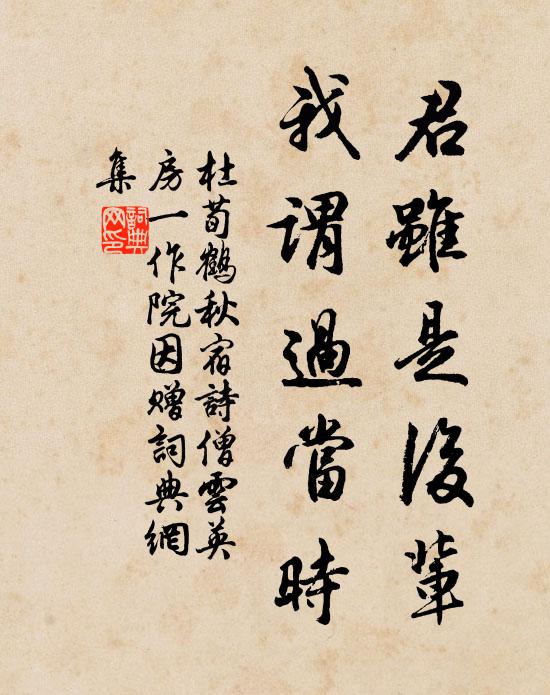 君雖是後輩
我謂過當時
杜荀鶴秋宿詩僧雲英
房一作院因贈詞典網
集
詞典網印